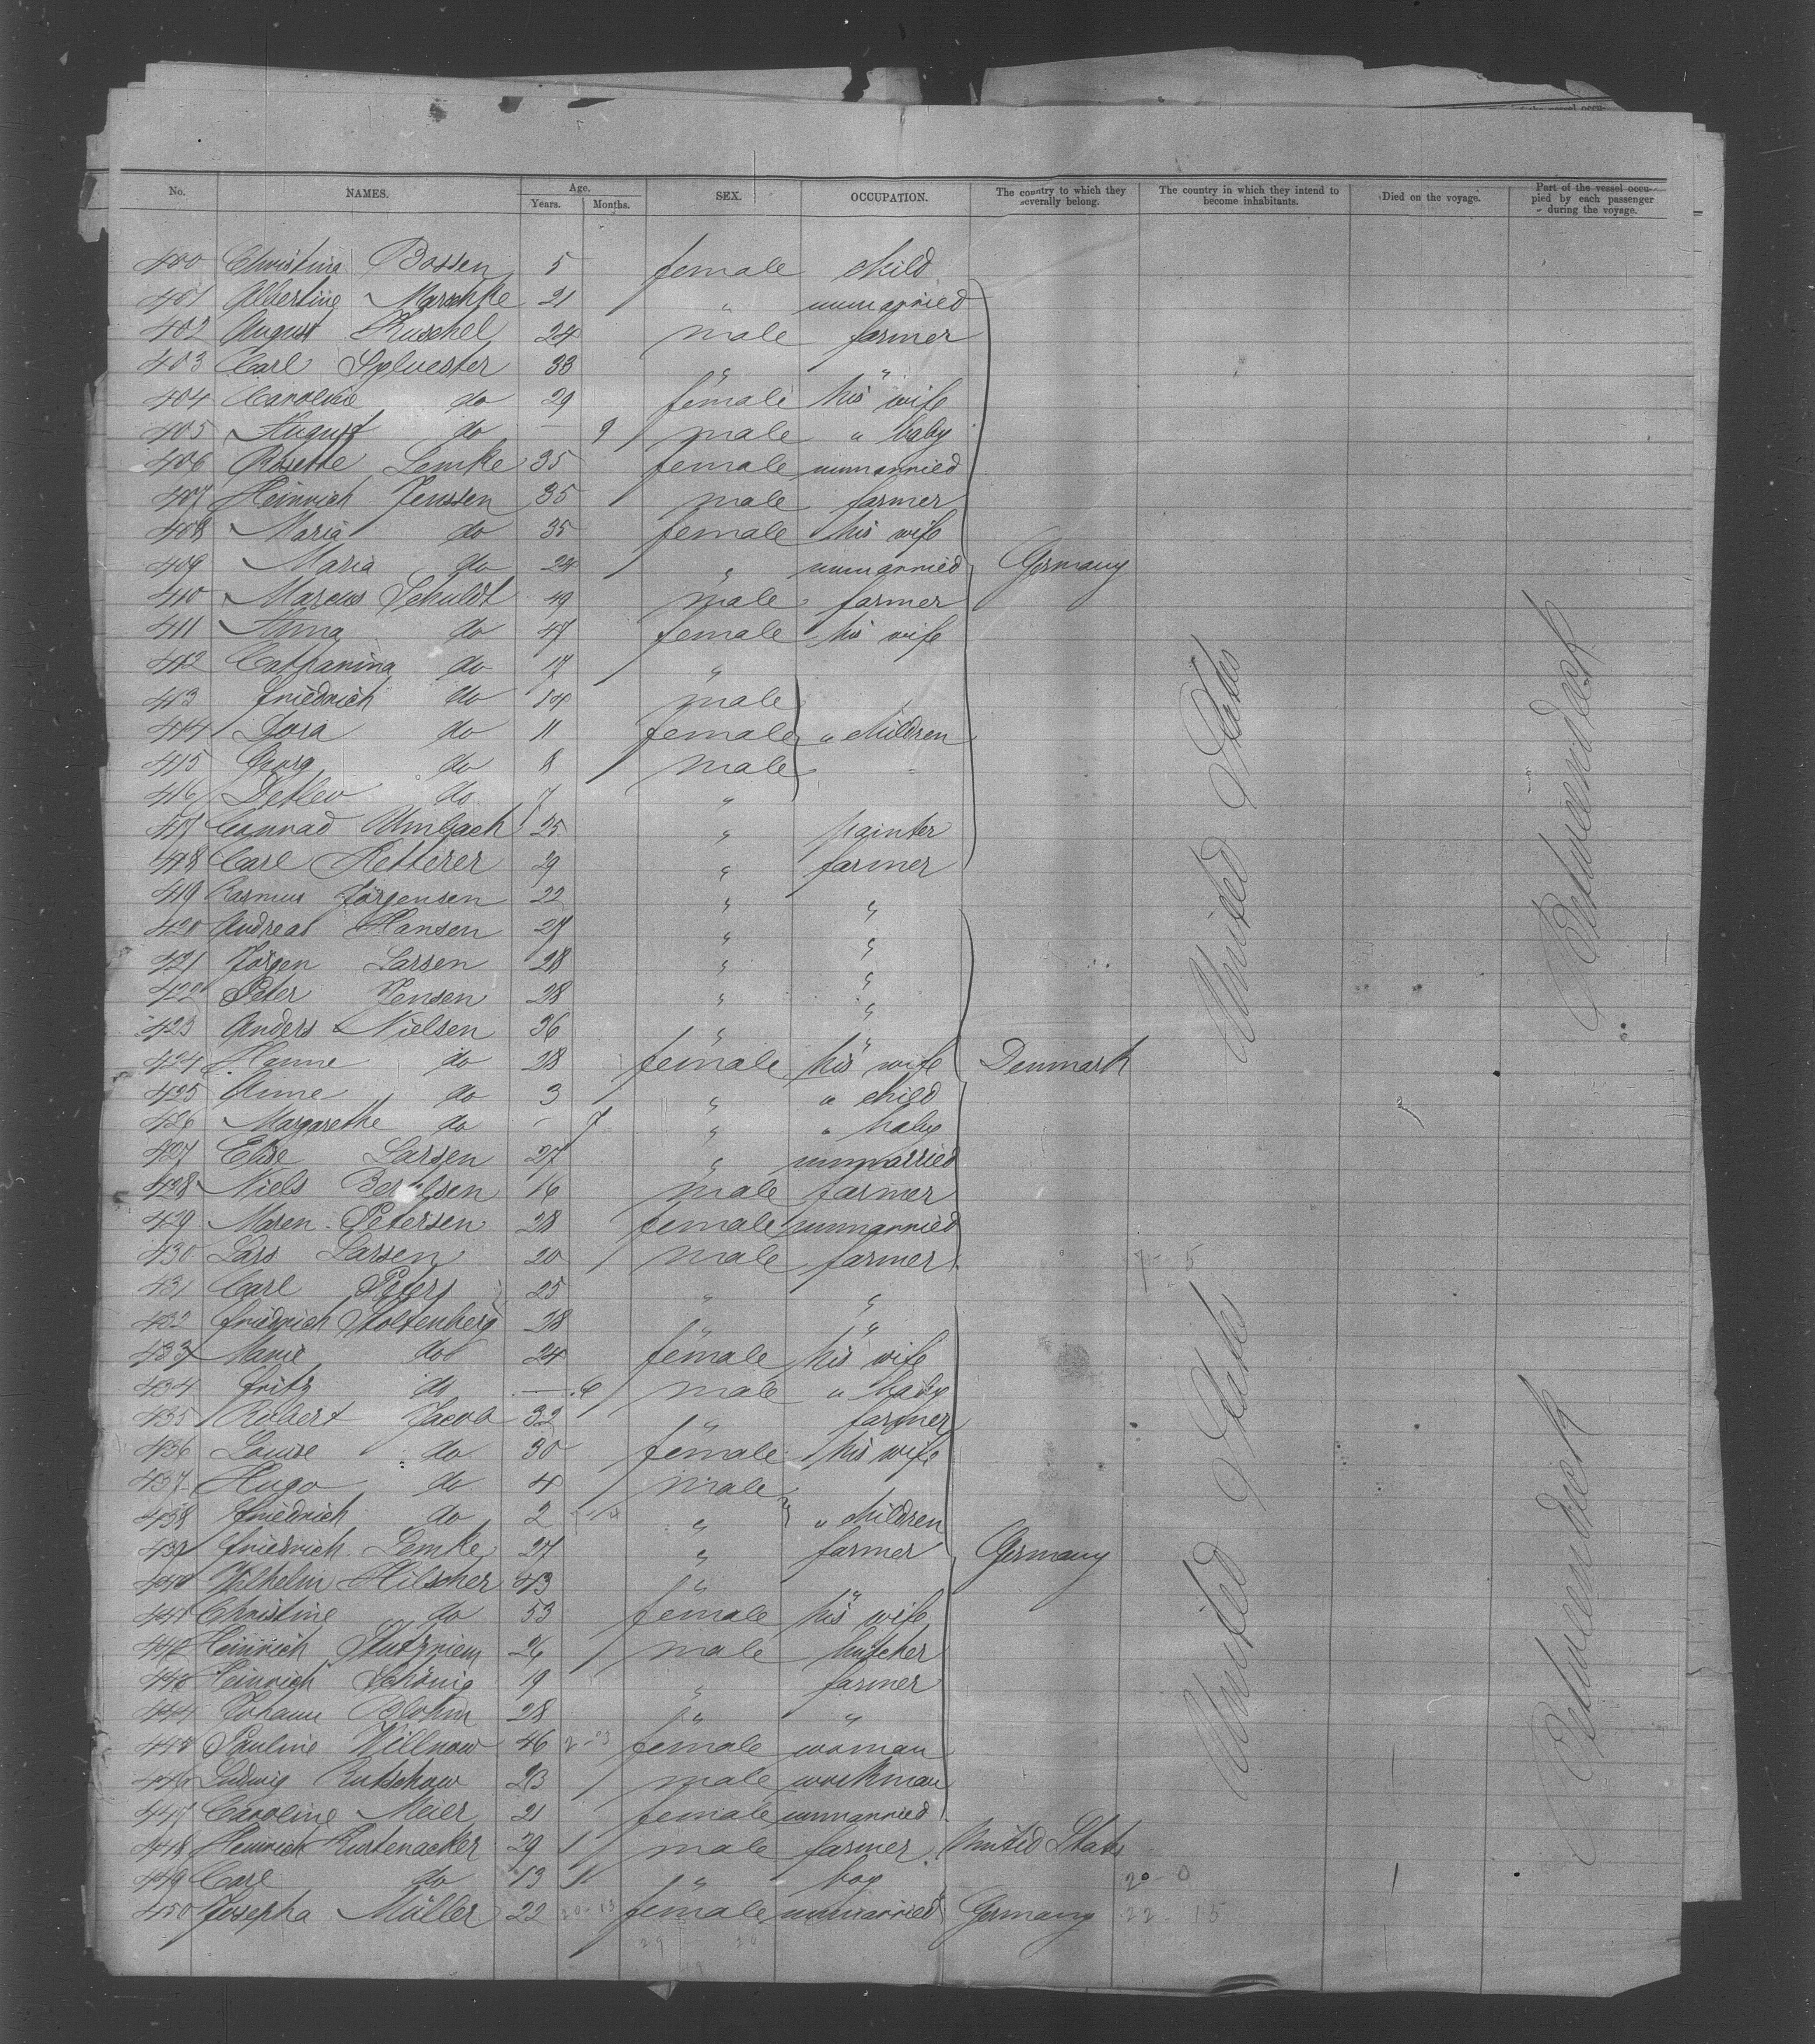 No. NAMES. Age. Years. Months. SEX. OCCUPATION. The country to which they severally belong. The country in which they intend to become inhabitants. Died on the voyage. Part of the vessel occupied by each passenger during the voyage.
400 Christina Bossen 5 female child
401 Albertine Maschke 21 " unmarried
402 August Ruschel 24 male farmer
403 Carl Sylvester 33 " "
404 Caroline do 29 female his wife
405 August do — 9 male " baby
406 Rosette Lemke 35 female unmarried
407 Heinrich Jenssen 35 male farmer
408 Maria do 35 female his wife
409 Maria do 24 " unmarried Germany
410 Marcus Schuldt 49 male farmer
411 Anna do 47 female his wife
412 Catharina do 17 "
413 Friedrich do 14 male
414 Dora do 11 female " children
415 Georg do 8 male
416 Detlev do 7 "
417 Conrad Umbach 25 " painter
418 Carl Ketterer 29 " farmer
419 Rasmus Jörgensen 22 " "
420 Andreas Hansen 27 " "
421 Jörgen Larsen 28 " "
422 Peter Jensen 28 " "
423 Anders Nielsen 36 " "
424 Hanne do 28 female his wife Denmark United States Betweendeck
425 Anne do 3 " " child
426 Margarethe do — 7 " " baby
427 Elise Larsen 27 " unmarried
428 Niels Bertelsen 16 male farmer
429 Maren Petersen 28 female unmarried
430 Lars Larsen 20 male farmer
431 Carl Peters 25 " "
432 Friedrich Stoltenberg 28 " "
433 Marie do 24 female his wife
434 Fritz do — 6 male " baby
435 Robert Jacob 32 " farmer
436 Louise do 30 female his wife
437 Hugo do 4 male
438 Friedrich do 2 " " children
439 Friedrich Lemke 27 " farmer Germany
440 Wilhelm Hilscher 43 " "
441 Christine do 53 female his wife
442 Heinrich 26 male butcher
443 Heinrich Schönig 19 " farmer
444 Johann Blohm 28 " "
445 Pauline Villnow 46 female woman United States Betweendeck
446 Ludwig Rutschow 23 male workman
447 Caroline Meier 21 female unmarried
448 Heinrich Kurtenacker 29 male farmer United States
449 Carl do 13 " boy 20 - 0
450 Josepha Müller 22 female unmarried Germany 22 - 15